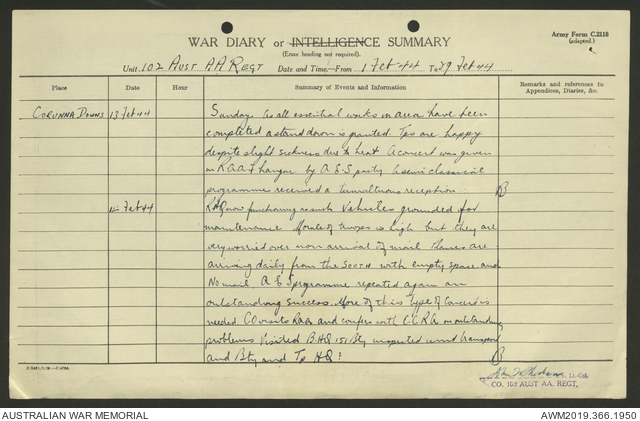 Army Form C.2118
(adapted.)
WAR DIARY or INTELLIGENCE SUMMARY
(Erase heading not required).
Unit 102 AUST AA REGT Date and Time:—From 1 Feb 44 To 29 Feb 44
Place Date Hour Summary of Events and Information Remarks and references to Appendices, Diaries, &c.
CORUNNA DOWNS 13 Feb 44 Sunday. As all essential works in area have been
completed a stand down is granted. Tps are happy
despite slight sickness due to heat. A concert was given
in RAAF hangar by A.E.S party. A semi classical
programme received a tumultuous reception.
Feb 44 RHQ now functioning as such. Vehicles grounded for
maintenance. Morale of troops is high but they are
very worried over non arrival of mail. Planes are
arriving daily from the SOUTH with empty space and
No mail. A E S programme repeated again an
outstanding success. More of this type of concert is
needed. CO visits RAA and confers with CCRA on outstanding
problems. Visited BHQ 151 Bty inspected transport
and Bty and Tp HQs
Lt-Col.
CO. 102 AUST AA. REGT.
AUSTRALIAN WAR MEMORIAL
AWM2019.366.1950